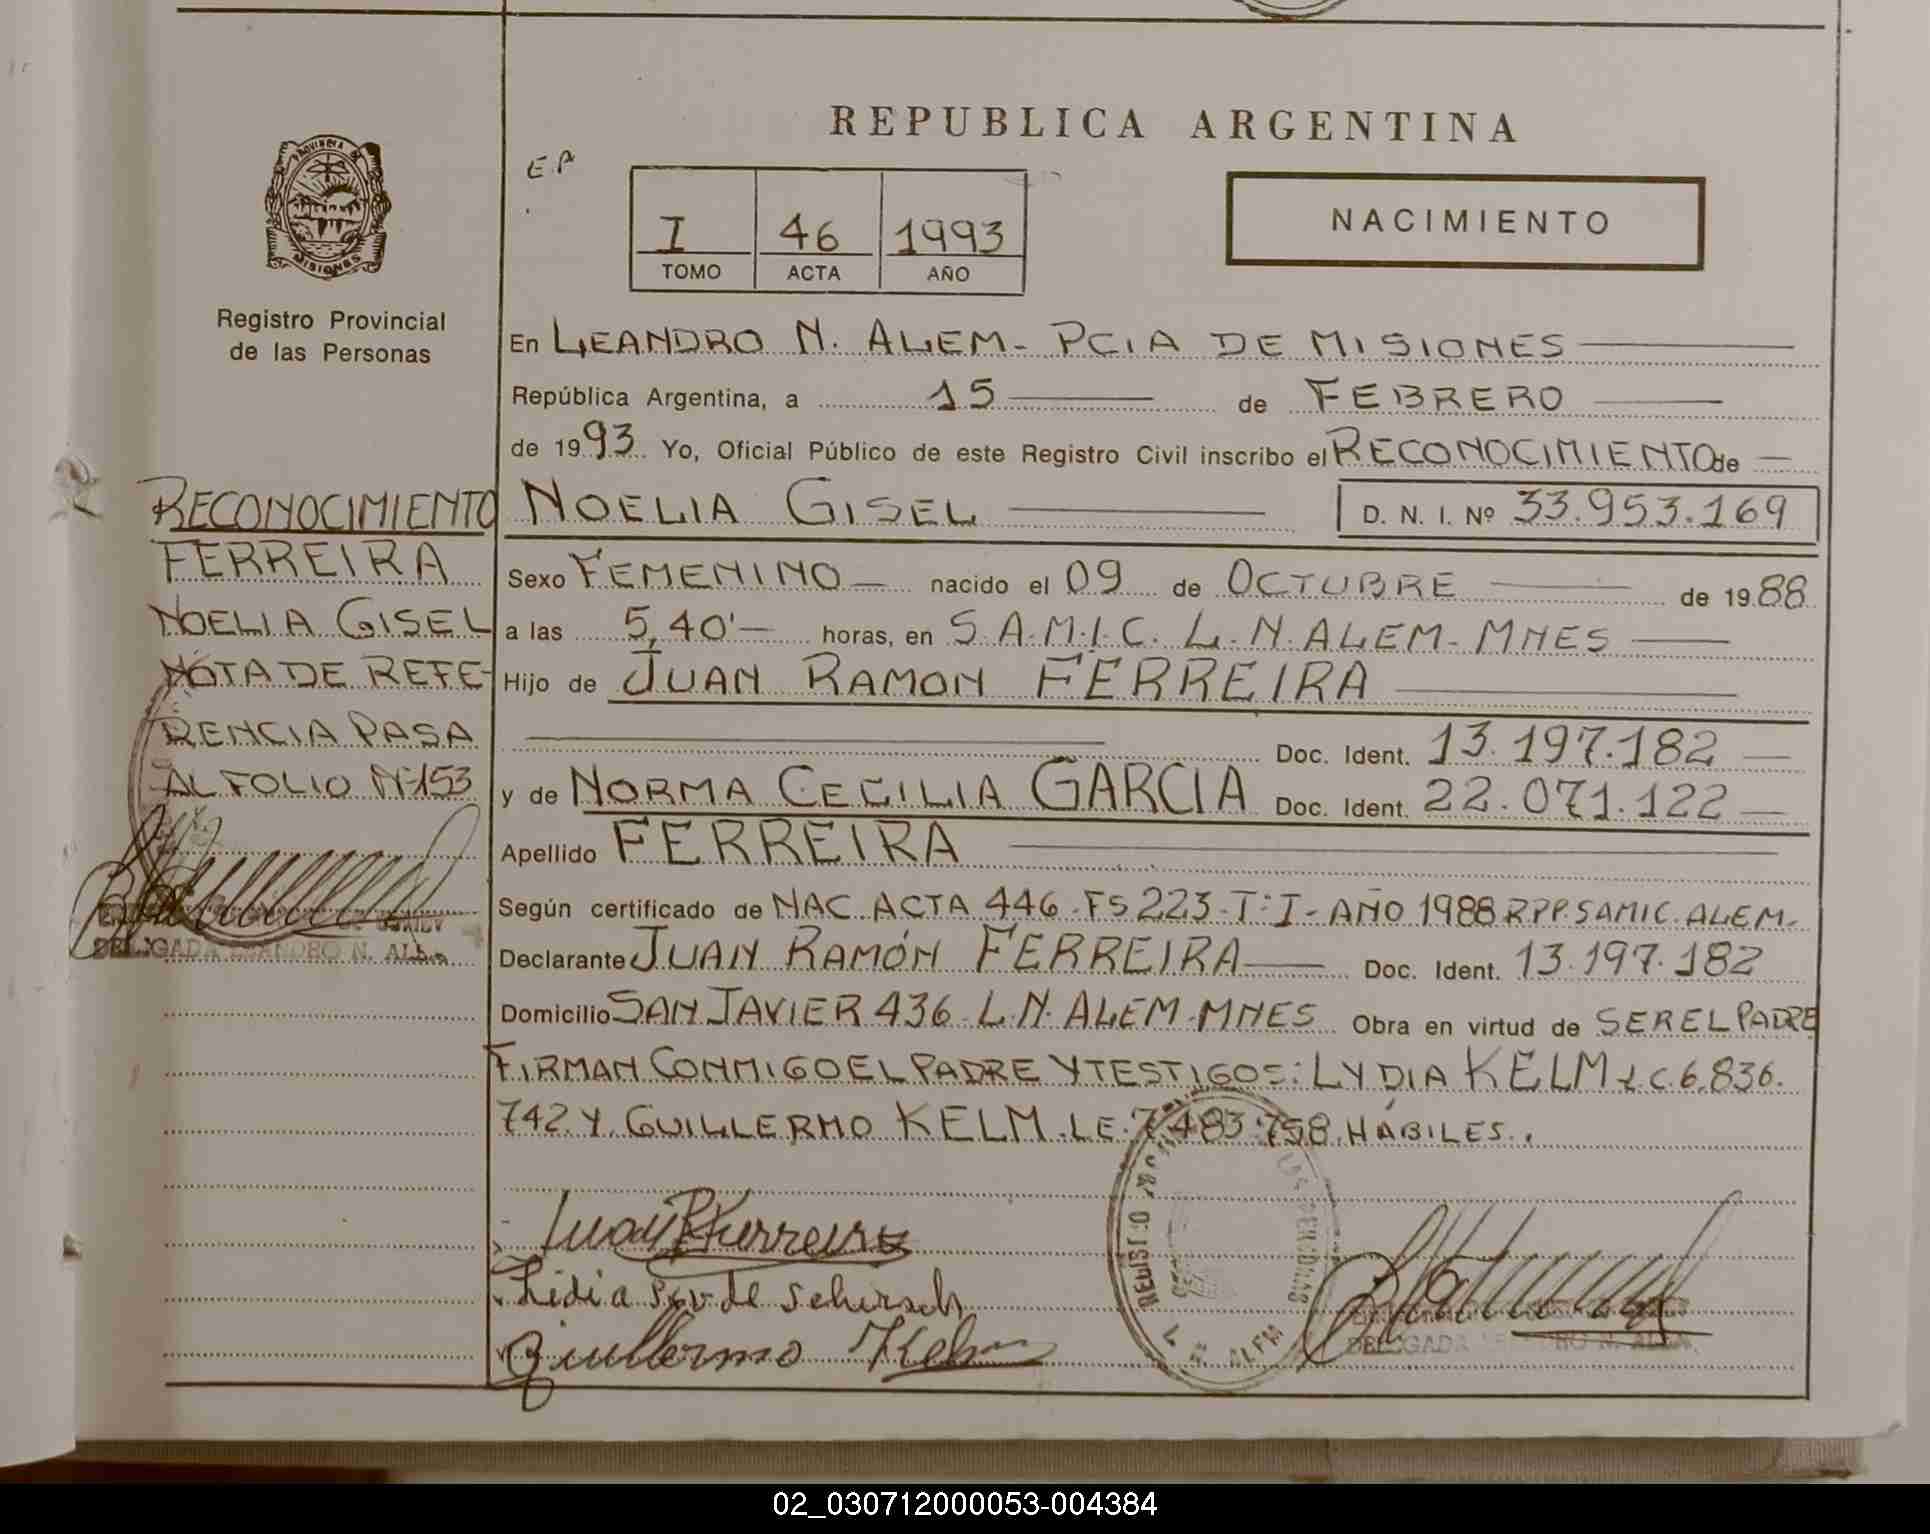 REPUBLICA ARGENTINA
E.P
I 46 1993
TOMO ACTA AÑO
NACIMIENTO
PROVINCIA DE
MISIONES
Registro Provincial
de las Personas
En LEANDRO N. ALEM - PCIA DE MISIONES
República Argentina, a 15 de FEBRERO
de 1993 Yo, Oficial Público de este Registro Civil inscribo el RECONOCIMIENTO de
NOELIA GISEL D. N. I. Nº 33.953.169
Sexo FEMENINO nacido el 09 de OCTUBRE de 1988
a las 5,40' horas, en S.A.M.I.C. L.N. ALEM - MNES
Hijo de JUAN RAMON FERREIRA
Doc. Ident. 13.197.182
y de NORMA CECILIA GARCIA Doc. Ident. 22.071.122
Apellido FERREIRA
Según certificado de NAC. ACTA 446 - FS 223 - T: I - AÑO 1988 R.P.P. SAMIC. ALEM -
Declarante JUAN RAMÓN FERREIRA Doc. Ident. 13.197.182
Domicilio SAN JAVIER 436 - L.N. ALEM - MNES Obra en virtud de SER EL PADRE
FIRMAN CONMIGO EL PADRE Y TESTIGOS: LYDIA KELM L.C. 6.836.
742 Y GUILLERMO KELM. LE. 7.483.758. HÁBILES.
RECONOCIMIENTO
FERREIRA
NOELIA GISEL
NOTA DE REFE-
RENCIA PASA
AL FOLIO Nº 153
DELEGADA LEANDRO N. ALEM
Juan R Ferreira
Lidia de
Guillermo Kelm
REGISTRO LAS PERSONAS
L. N. ALEM
DELEGADA LEANDRO N. ALEM
02_030712000053-004384